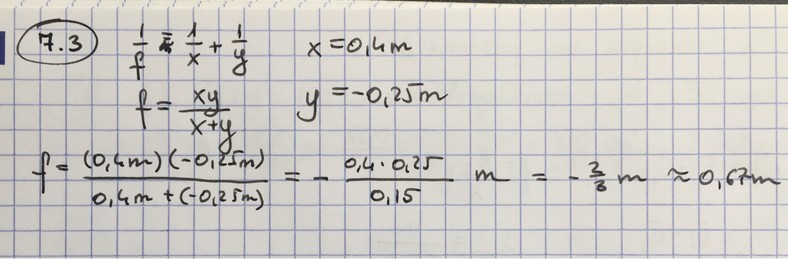 7.3 1/f = 1/x + 1/y x = 0,4m
f = xy/(x+y) y = -0,25m
f = (0,4m)(-0,25m)/(0,4m + (-0,25m)) = - (0,4·0,25)/0,15 m = - 2/3 m ≈ 0,67m